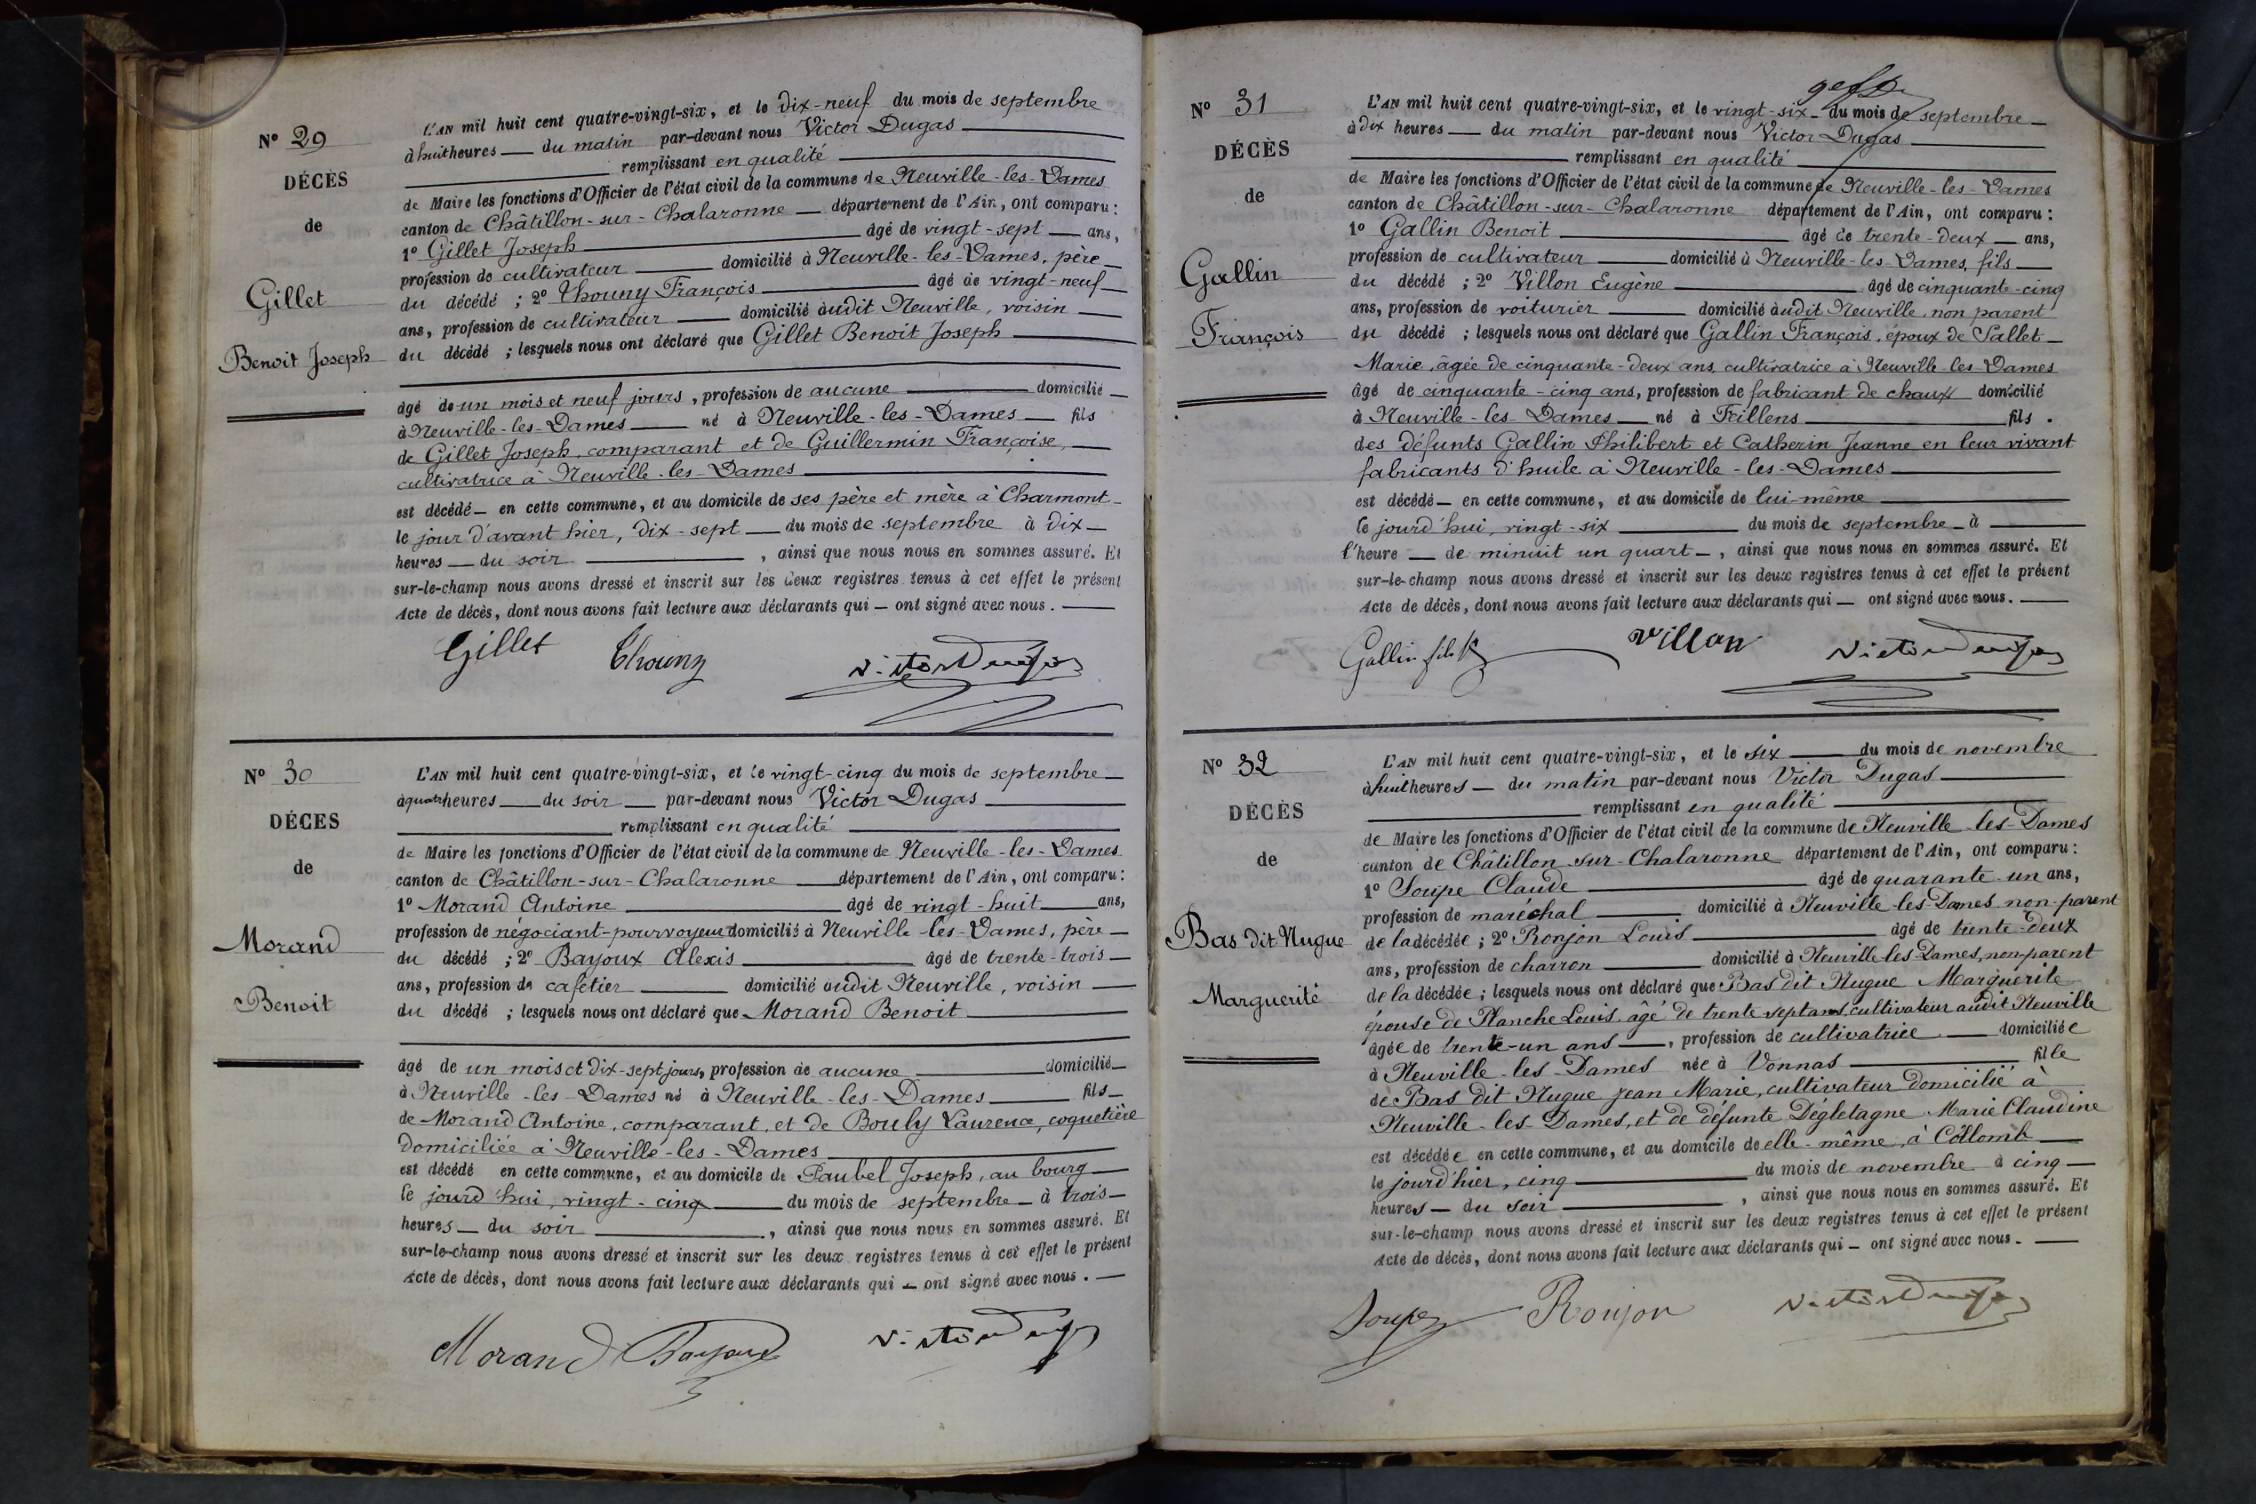 N° 29
DÉCÈS
de
Gillet
Benoit Joseph
L'AN mil huit cent quatre-vingt-six, et le dix-neuf du mois de septembre
à huit heures du matin par-devant nous Victor Dugas
remplissant en qualité
de Maire les fonctions d'Officier de l'état civil de la commune de Neuville-les-Dames
canton de Châtillon-sur-Chalaronne département de l'Ain, ont comparu :
1° Gillet Joseph âgé de vingt-sept ans,
profession de cultivateur domicilié à Neuville-les-Dames, père
du décédé ; 2° Thouny François âgé de vingt-neuf
ans, profession de cultivateur domicilié audit Neuville, voisin
du décédé ; lesquels nous ont déclaré que Gillet Benoit Joseph
âgé de un mois et neuf jours, profession de aucune domicilié
à Neuville-les-Dames né à Neuville-les-Dames fils
de Gillet Joseph, comparant et de Guillermin Françoise,
cultivatrice à Neuville-les-Dames
est décédé en cette commune, et au domicile de ses père et mère à Charmont
le jour d'avant hier, dix-sept du mois de septembre à dix
heures du soir, ainsi que nous nous en sommes assuré. Et
sur-le-champ nous avons dressé et inscrit sur les deux registres tenus à cet effet le présent
Acte de décès, dont nous avons fait lecture aux déclarants qui ont signé avec nous.
Gillet Thouny Victor Dugas
N° 30
DÉCES
de
Morand
Benoit
L'AN mil huit cent quatre-vingt-six, et le vingt-cinq du mois de septembre
à quatre heures du soir par-devant nous Victor Dugas
remplissant en qualité
de Maire les fonctions d'Officier de l'état civil de la commune de Neuville-les-Dames
canton de Châtillon-sur-Chalaronne département de l'Ain, ont comparu :
1° Morand Antoine âgé de vingt-huit ans,
profession de négociant-pourvoyeur domicilié à Neuville-les-Dames, père
du décédé ; 2° Bayoux Alexis âgé de trente-trois
ans, profession de cafetier domicilié audit Neuville, voisin
du décédé ; lesquels nous ont déclaré que Morand Benoit
âgé de un mois et dix-sept jours, profession de aucune domicilié
à Neuville-les-Dames né à Neuville-les-Dames fils
de Morand Antoine, comparant, et de Bouly Laurence, coquetière
domiciliée à Neuville-les-Dames
est décédé en cette commune, et au domicile de Paubel Joseph, au bourg
le jourd'hui, vingt-cinq du mois de septembre à trois
heures du soir, ainsi que nous nous en sommes assuré. Et
sur-le-champ nous avons dressé et inscrit sur les deux registres tenus à cet effet le présent
Acte de décès, dont nous avons fait lecture aux déclarants qui ont signé avec nous.
Morand Bayoux Victor Dugas
N° 31
DÉCÈS
de
Gallin
François
L'AN mil huit cent quatre-vingt-six, et le vingt-six du mois de septembre
à dix heures du matin par-devant nous Victor Dugas
remplissant en qualité
de Maire les fonctions d'Officier de l'état civil de la commune de Neuville-les-Dames
canton de Châtillon-sur-Chalaronne département de l'Ain, ont comparu :
1° Gallin Benoit âgé de trente-deux ans,
profession de cultivateur domicilié à Neuville-les-Dames, fils
du décédé ; 2° Villon Eugène âgé de cinquante-cinq
ans, profession de voiturier domicilié audit Neuville, non parent
du décédé ; lesquels nous ont déclaré que Gallin François, époux de Sallet
Marie, âgée de cinquante-deux ans, cultivatrice à Neuville-les-Dames
âgé de cinquante-cinq ans, profession de fabricant de chaux domicilié
à Neuville-les-Dames né à Frillens fils
des défunts Gallin Philibert et Catherin Jeanne en leur vivant
fabricants d'huile à Neuville-les-Dames
est décédé en cette commune, et au domicile de lui-même
le jourd'hui, vingt-six du mois de septembre à
l'heure de minuit un quart, ainsi que nous nous en sommes assuré. Et
sur-le-champ nous avons dressé et inscrit sur les deux registres tenus à cet effet le présent
Acte de décès, dont nous avons fait lecture aux déclarants qui ont signé avec nous.
Gallin fils Villon Victor Dugas
N° 32
DÉCÈS
de
Bas dit Nugue
Marguerité
L'AN mil huit cent quatre-vingt-six, et le six du mois de novembre
à huit heures du matin par-devant nous Victor Dugas
remplissant en qualité
de Maire les fonctions d'Officier de l'état civil de la commune de Neuville-les-Dames
canton de Châtillon-sur-Chalaronne département de l'Ain, ont comparu :
1° Soupe Claude âgé de quarante-un ans,
profession de maréchal domicilié à Neuville-les-Dames non-parent
de la décédée ; 2° Ronjon Louis âgé de trente-deux
ans, profession de charron domicilié à Neuville-les-Dames, non-parent
de la décédée ; lesquels nous ont déclaré que Bas dit Nugue Marguerite
épouse de Planche Louis, âgé de trente sept ans, cultivateur audit Neuville
âgée de trente-un ans, profession de cultivatrice domiciliée
à Neuville-les-Dames née à Vonnas fille
de Bas dit Nugue Jean Marie, cultivateur domicilié à
Neuville-les-Dames, et de défunte Dégletagne Marie Claudine
est décédée en cette commune, et au domicile de elle-même, à Collomb
le jourd'hier, cinq du mois de novembre à cinq
heures du soir, ainsi que nous nous en sommes assuré. Et
sur-le-champ nous avons dressé et inscrit sur les deux registres tenus à cet effet le présent
Acte de décès, dont nous avons fait lecture aux déclarants qui ont signé avec nous.
Soupe Ronjon Victor Dugas